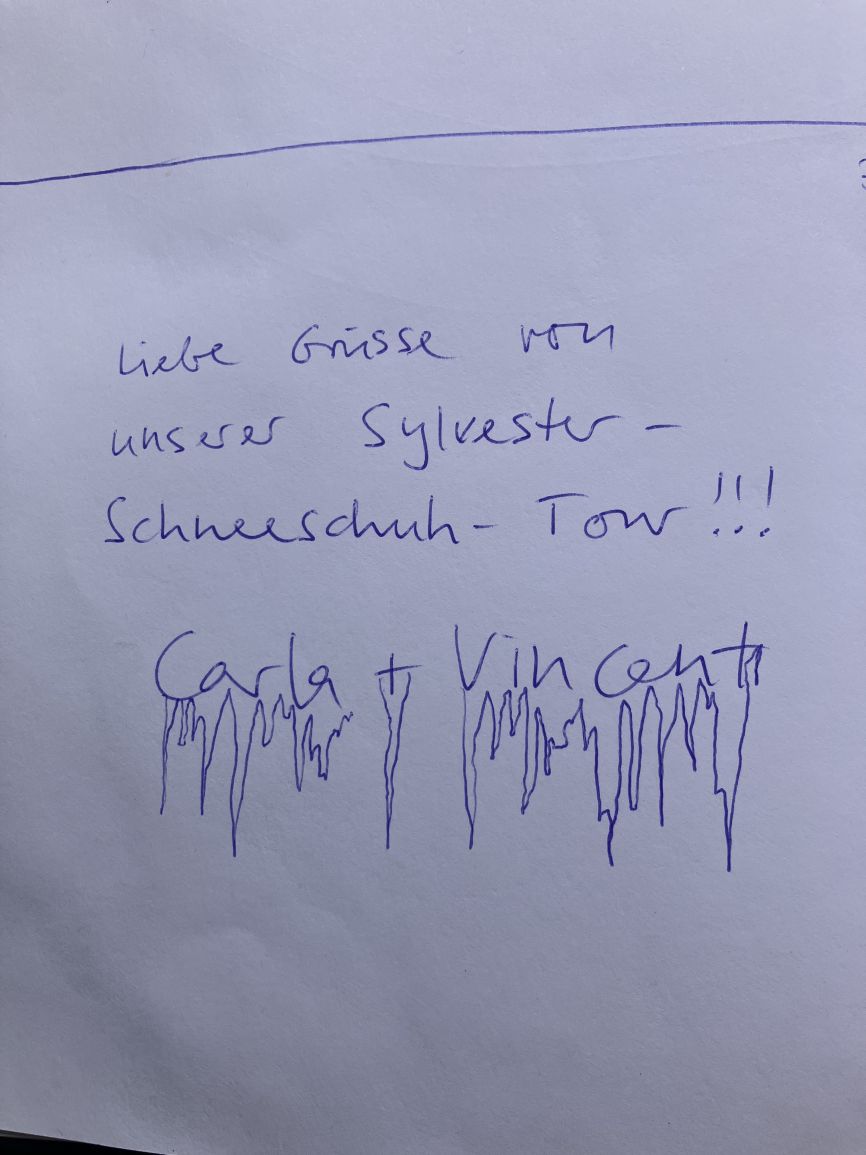 Liebe Grüsse von
unserer Sylvester-
Schneeschuh-Tour!!!
Carla + Vincent